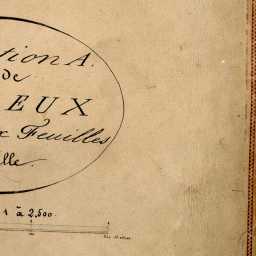 tion A.
de
EUX
x Feuilles
lle.
1 à 2,500.